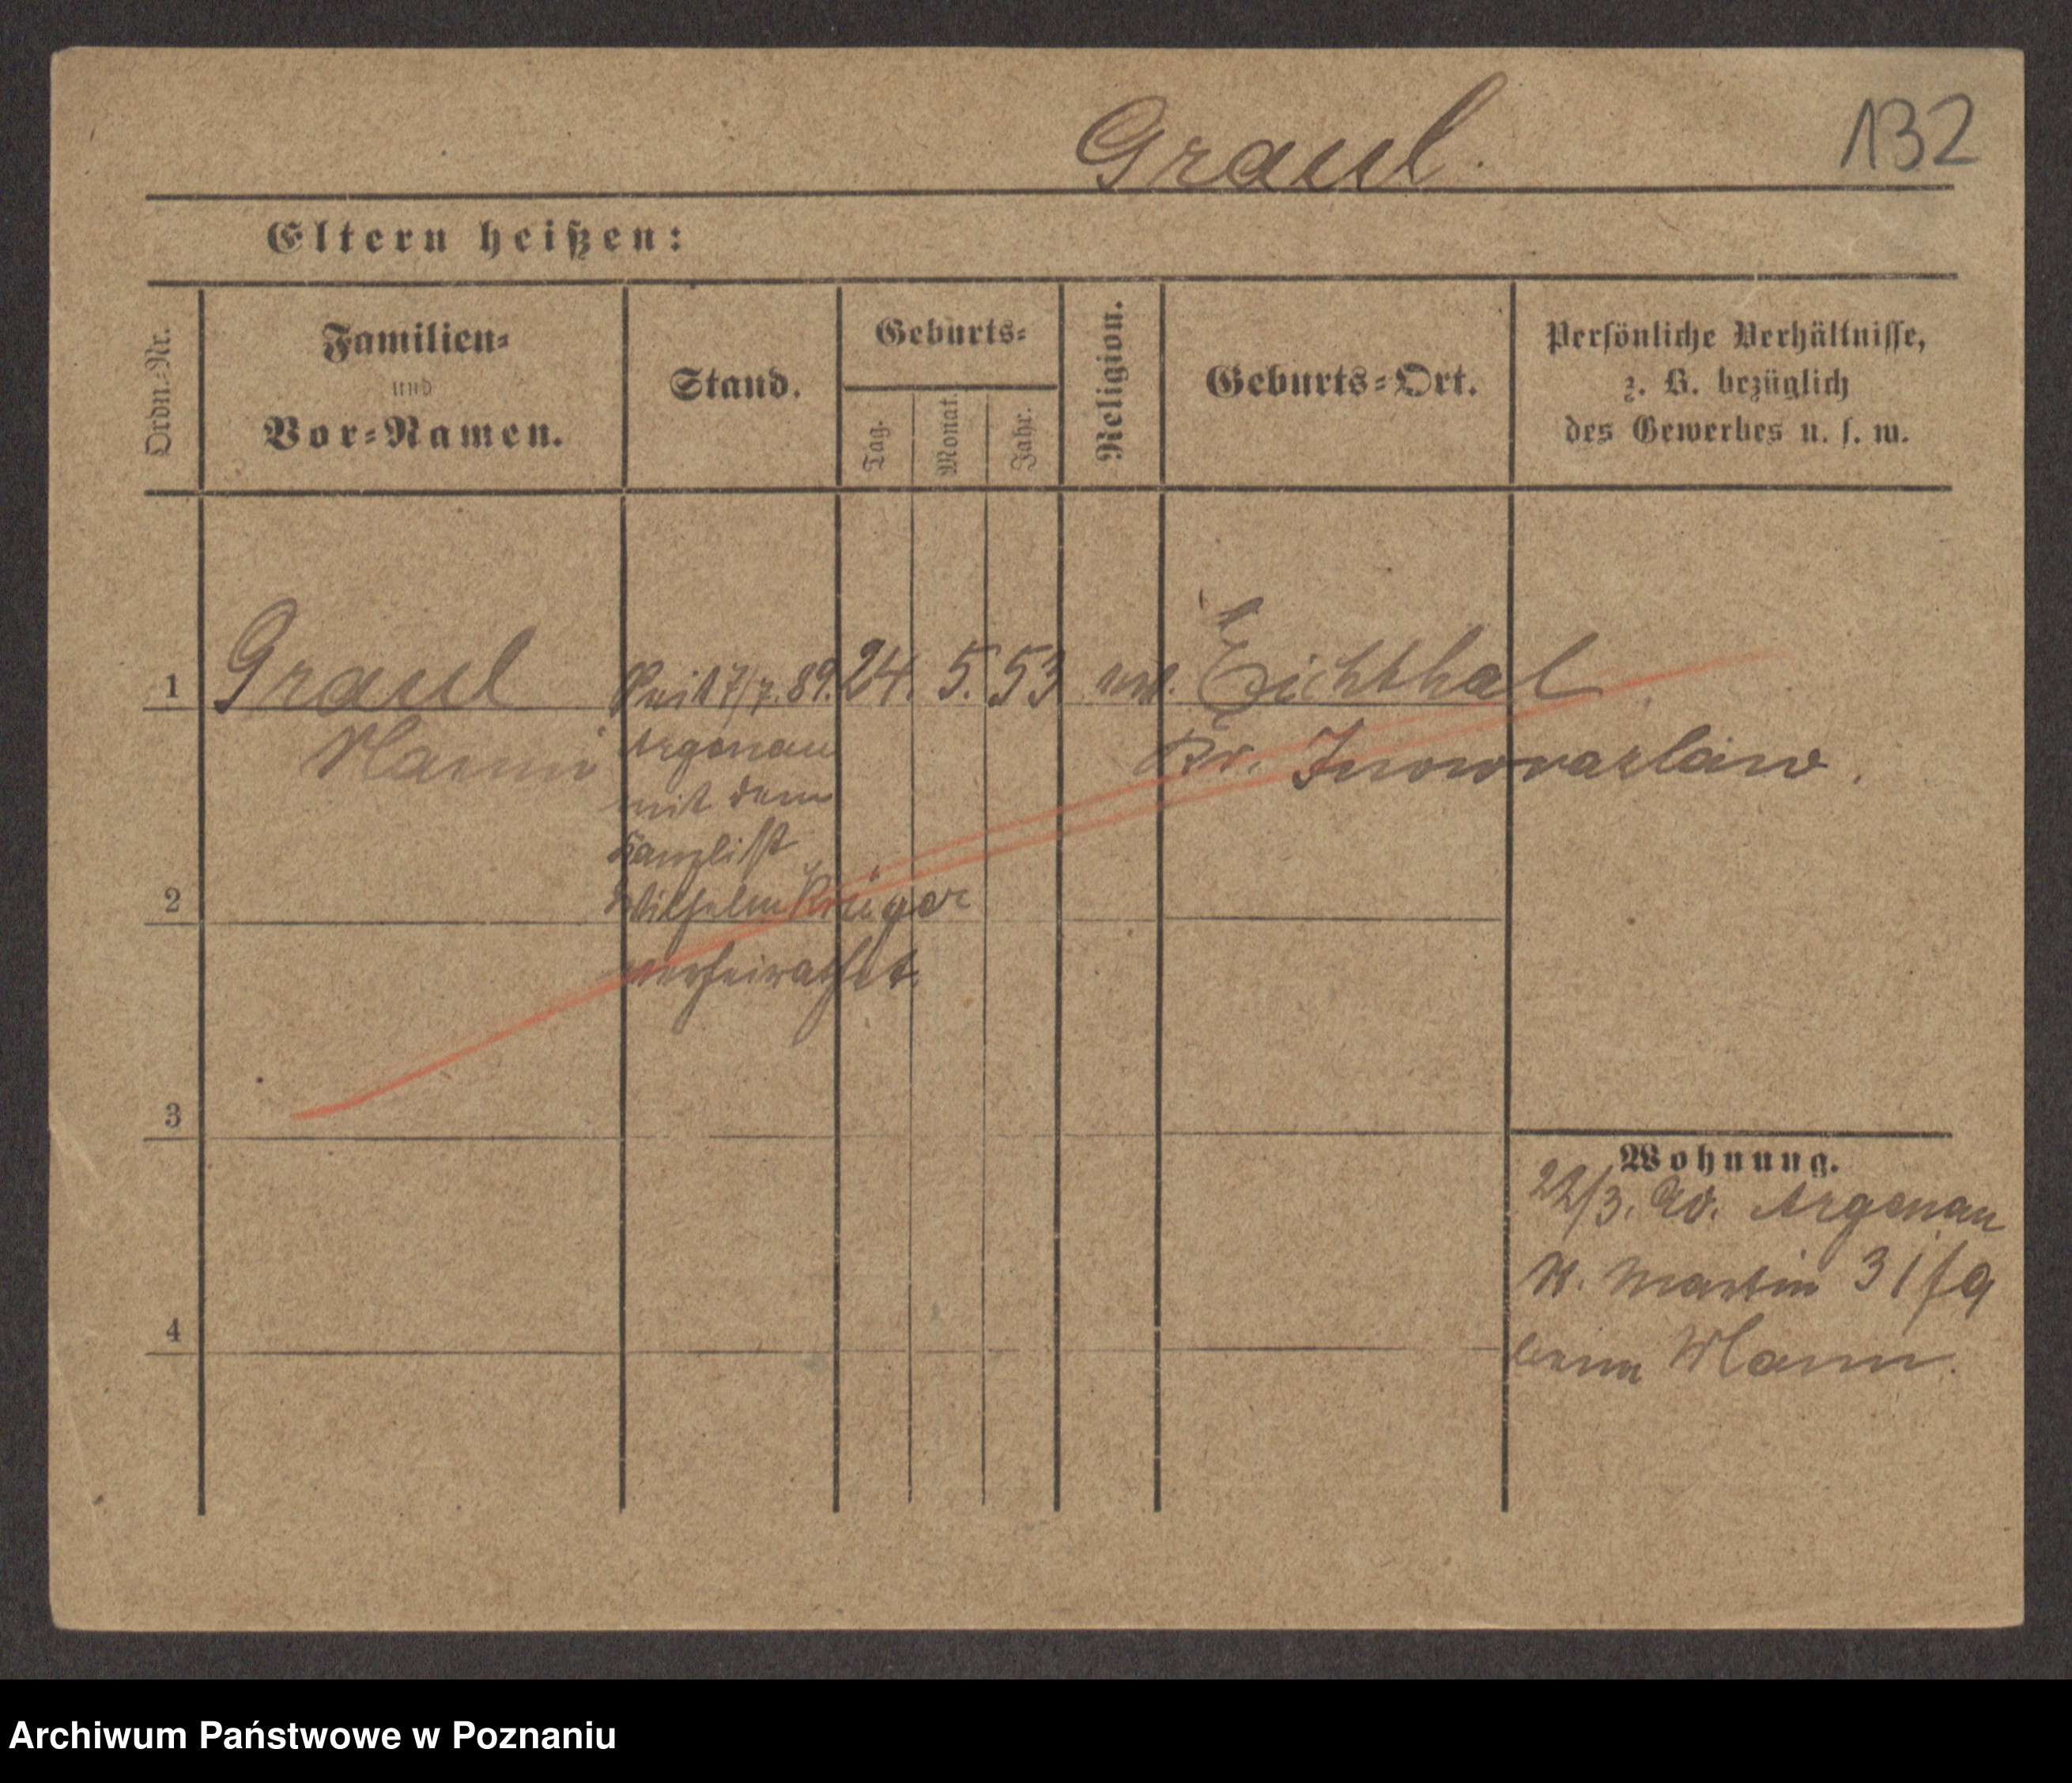 Graul.
132
Eltern heißen:
Ordn.-Nr.
Familien-
und
Vor-Namen.
Stand.
Geburts-
Tag.
Monat.
Jahr.
Religion.
Geburts-Ort.
Persönliche Verhältnisse,
z. B. bezüglich
des Gewerbes u. s. w.
1 Graul seit 17/7. 89. 24. 5. 53 Eichthal
Argenau Kr. Inowrazlaw.
mit dem
Kanzlist
2 Wilhelm Krüger
verheirathet.
3
Wohnung.
22/3. 90. Argenau
St. Martin 31
4
beim Mann.
Archiwum Państwowe w Poznaniu